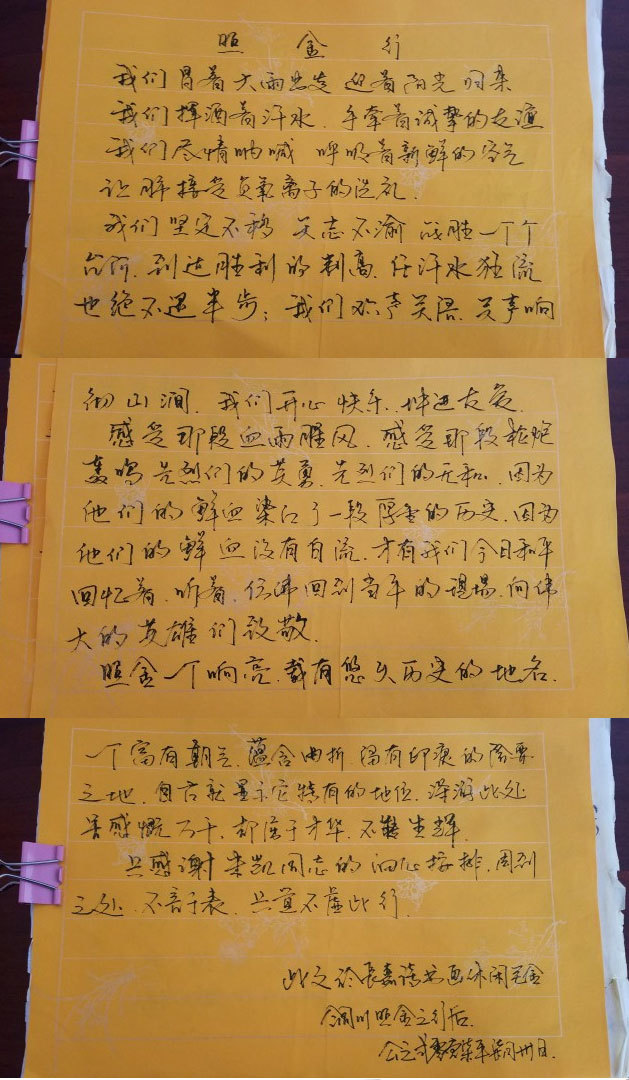 照金行
我们冒着大雨出发 迎着阳光归来
我们挥洒着汗水、手牵着诚挚的友谊
我们尽情呐喊 呼吸着新鲜的空气
让肺接受负氧离子的洗礼.
我们坚定不移 矢志不渝 战胜一个个
台阶.到达胜利的制高.任汗水狂流
也绝不退半步；我们欢声笑语.笑声响
彻山涧.我们开心快乐.增进友爱.
感受那段血雨腥风.感受那段枪炮
轰鸣 先烈们的英勇.先烈们的无私.因为
他们的鲜血染红了一段厚重的历史.因为
他们的鲜血没有白流.才有我们今日和平
回忆着.听着.仿佛回到当年的现场.向伟
大的英雄们致敬.
照金一个响亮.载有悠久历史的地名.
一个富有朝气.蕴含曲折.留有印痕的险要
之地.自古就显示它特有的地位.深游此处
皆感慨万千.却 于才华.不 生辉.
只感谢 凯同志的 心按排.周到
之处.不言于表.只道不虚此行.
此文于 嘉 书画休闲
铜川照金之行后.